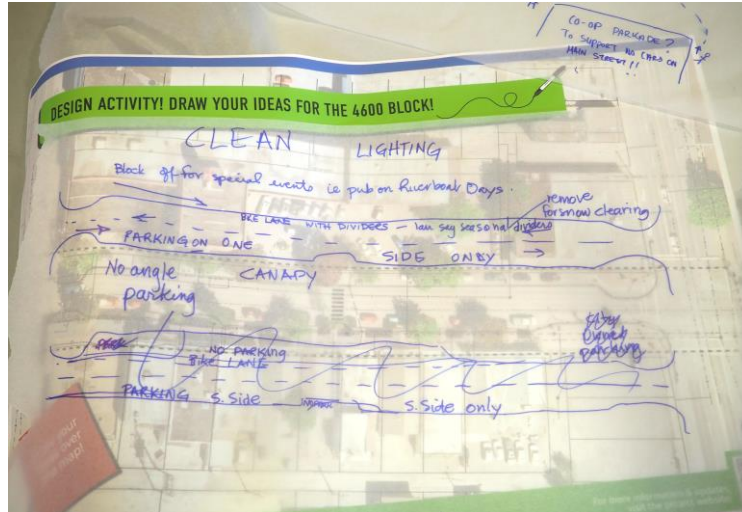 CO-OP PARKADE?
TO SUPPORT NO CARS ON
MAIN STREET!!
DESIGN ACTIVITY! DRAW YOUR IDEAS FOR THE 4600 BLOCK!
CLEAN LIGHTING
Block off for special events ie pub on Riverboat Days.
remove
for snow clearing
BIKE LANE WITH DIVIDERS — say seasonal dividers
PARKING ON ONE SIDE ONLY
No angle
parking
CANAPY
NO PARKING
BIKE LANE
parking
PARKING S. Side S. Side only
your
over
map!